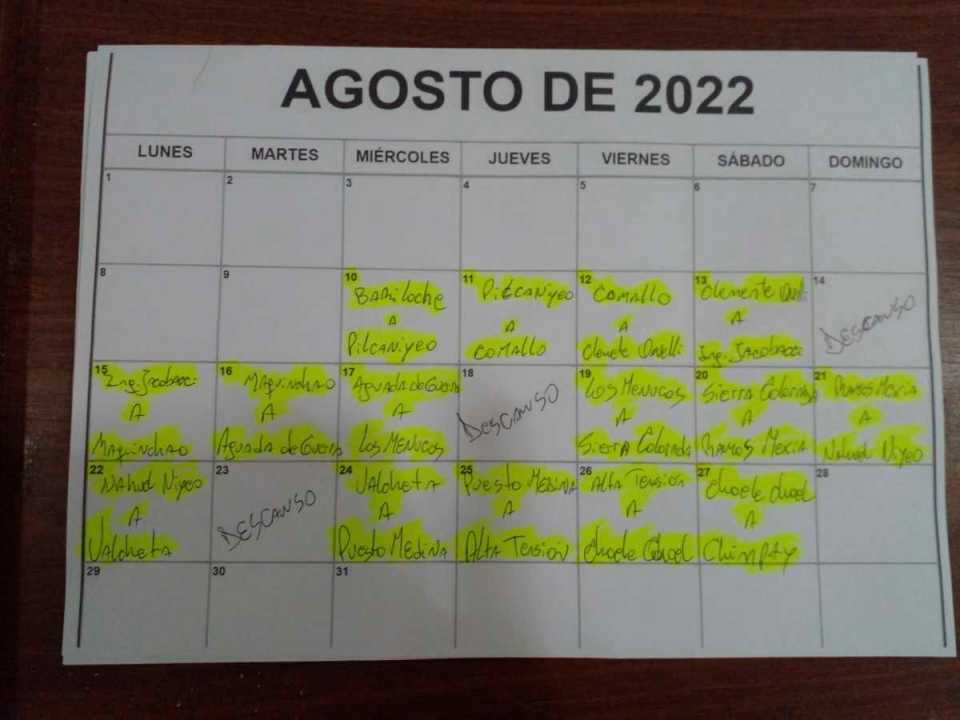 AGOSTO DE 2022
LUNES MARTES MIÉRCOLES JUEVES VIERNES SÁBADO DOMINGO
1 2 3 4 5 6 7
8 9 10 11 12 13 14
BARiloche PilCANiyeo COMALLO Clemente DESCANSO
A A A A
PilCANiyeo COMALLO Onelli Ing. JACobacci
15 16 17 18 19 20 21
Ing. JACobacci MAquinchAo AguAdA de GuerrA DESCANSO LOS MENUCOS SierrA ColorAdA RAMOS MexiA
A A A A A A
MAquinchAo AguAdA de GuerrA LOS MENUCOS SierrA ColorAdA RAMOS MexiA NAhuel Niyeo
22 23 24 25 26 27 28
NAhuel Niyeo DESCANSO VALCHETA PUESTO MEDINA ALTA TENSION Choele Choel
A A A A A
VAlchetA PUESTO MEDiNA ALTA TENSION Choele Choel Chimpay
29 30 31